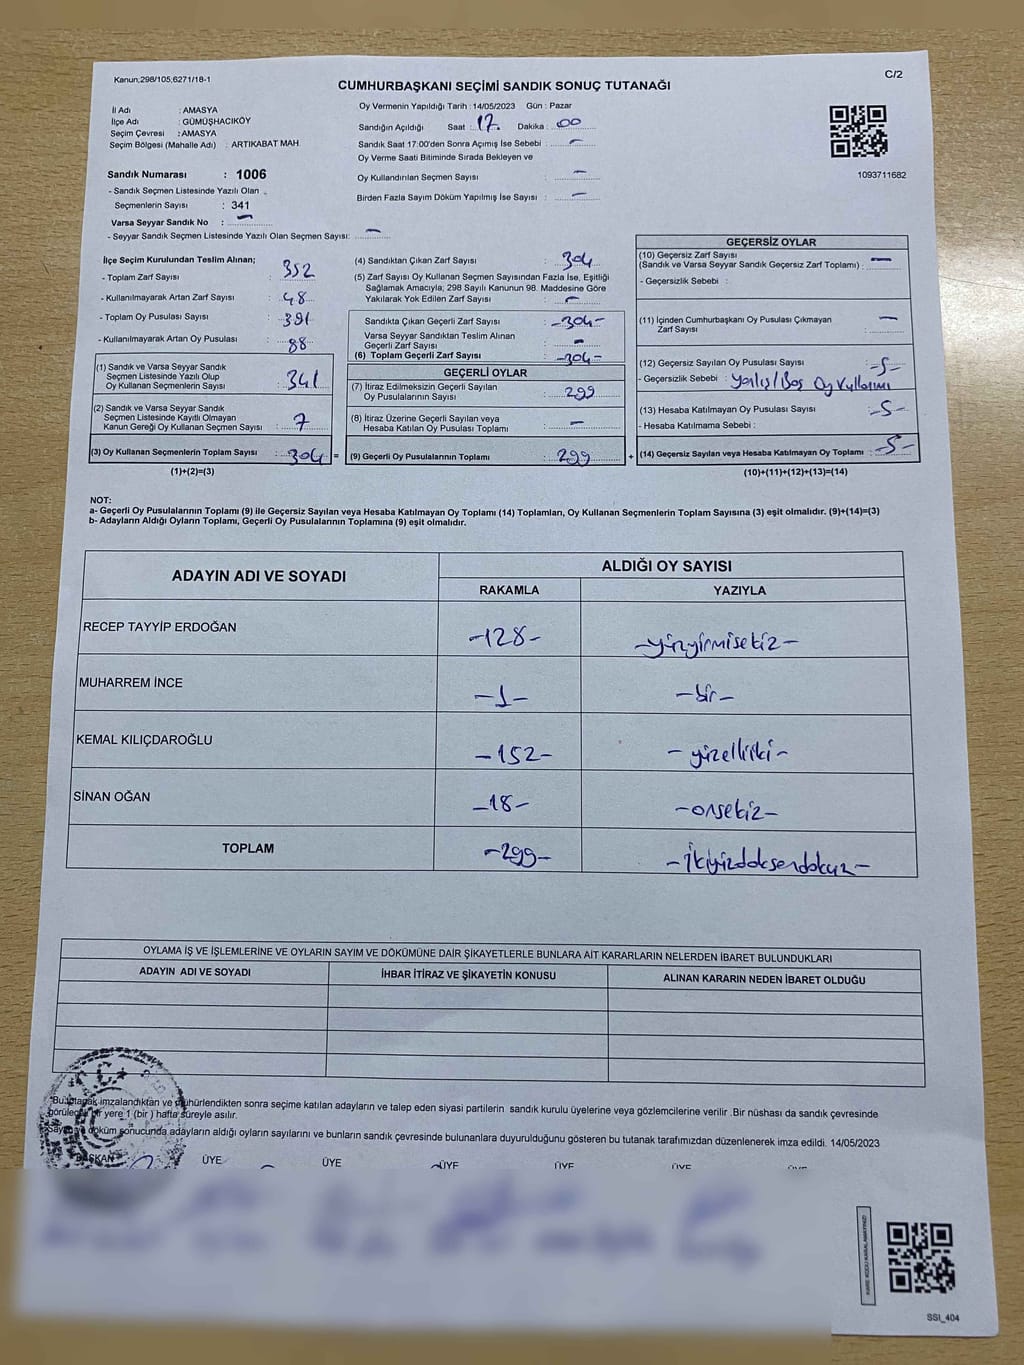 Kanun;298/105,6271/18-1
C/2
CUMHURBAŞKANI SEÇİMİ SANDIK SONUÇ TUTANAĞI
İl Adı : AMASYA
İlçe Adı : GÜMÜŞHACIKÖY
Seçim Çevresi : AMASYA
Seçim Bölgesi (Mahalle Adı) : ARTIKABAT MAH.
Sandık Numarası : 1006
- Sandık Seçmen Listesinde Yazılı Olan
Seçmenlerin Sayısı : 341
Varsa Seyyar Sandık No : -
- Seyyar Sandık Seçmen Listesinde Yazılı Olan Seçmen Sayısı: -
Oy Vermenin Yapıldığı Tarih :14/05/2023 Gün : Pazar
Sandığın Açıldığı Saat : 17. Dakika : 00
Sandık Saat 17:00'den Sonra Açımış İse Sebebi : -
Oy Verme Saati Bitiminde Sırada Bekleyen ve
Oy Kullandırılan Seçmen Sayısı : -
Birden Fazla Sayım Döküm Yapılmış İse Sayısı : -
1093711682
İlçe Seçim Kurulundan Teslim Alınan;
- Toplam Zarf Sayısı : 352
- Kullanılmayarak Artan Zarf Sayısı : 48
- Toplam Oy Pusulası Sayısı : 391
- Kullanılmayarak Artan Oy Pusulası : 88
(1) Sandık ve Varsa Seyyar Sandık
Seçmen Listesinde Yazılı Olup
Oy Kullanan Seçmenlerin Sayısı : 341
(2) Sandık ve Varsa Seyyar Sandık
Seçmen Listesinde Kayıtlı Olmayan
Kanun Gereği Oy Kullanan Seçmen Sayısı : 7
(3) Oy Kullanan Seçmenlerin Toplam Sayısı : 304 =
(1)+(2)=(3)
(4) Sandıktan Çıkan Zarf Sayısı : 304
(5) Zarf Sayısı Oy Kullanan Seçmen Sayısından Fazla İse, Eşitliği
Sağlamak Amacıyla; 298 Sayılı Kanunun 98. Maddesine Göre
Yakılarak Yok Edilen Zarf Sayısı : -
Sandıkta Çıkan Geçerli Zarf Sayısı : -304-
Varsa Seyyar Sandıktan Teslim Alınan
Geçerli Zarf Sayısı : -
(6) Toplam Geçerli Zarf Sayısı : -304-
GEÇERLİ OYLAR
(7) İtiraz Edilmeksizin Geçerli Sayılan
Oy Pusulalarının Sayısı : 299
(8) İtiraz Üzerine Geçerli Sayılan veya
Hesaba Katılan Oy Pusulası Toplamı : -
(9) Geçerli Oy Pusulalarının Toplamı : 299 +
GEÇERSİZ OYLAR
(10) Geçersiz Zarf Sayısı
(Sandık ve Varsa Seyyar Sandık Geçersiz Zarf Toplamı) : -
- Geçersizlik Sebebi :
(11) İçinden Cumhurbaşkanı Oy Pusulası Çıkmayan
Zarf Sayısı : -
(12) Geçersiz Sayılan Oy Pusulası Sayısı : -5-
- Geçersizlik Sebebi : Yanlış/Boş Oy Kullanımı
(13) Hesaba Katılmayan Oy Pusulası Sayısı : -5-
- Hesaba Katılmama Sebebi :
(14) Geçersiz Sayılan veya Hesaba Katılmayan Oy Toplamı : -5-
(10)+(11)+(12)+(13)=(14)
NOT:
a- Geçerli Oy Pusulalarının Toplamı (9) ile Geçersiz Sayılan veya Hesaba Katılmayan Oy Toplamı (14) Toplamları, Oy Kullanan Seçmenlerin Toplam Sayısına (3) eşit olmalıdır. (9)+(14)=(3)
b- Adayların Aldığı Oyların Toplamı, Geçerli Oy Pusulalarının Toplamına (9) eşit olmalıdır.
ADAYIN ADI VE SOYADI
ALDIĞI OY SAYISI
RAKAMLA YAZIYLA
RECEP TAYYİP ERDOĞAN -128- -yüzyirmisekiz-
MUHARREM İNCE -1- -bir-
KEMAL KILIÇDAROĞLU -152- -yüzelliiki-
SİNAN OĞAN -18- -onsekiz-
TOPLAM -299- -ikiyüzdoksendokuz-
OYLAMA İŞ VE İŞLEMLERİNE VE OYLARIN SAYIM VE DÖKÜMÜNE DAİR ŞİKAYETLERLE BUNLARA AİT KARARLARIN NELERDEN İBARET BULUNDUKLARI
ADAYIN ADI VE SOYADI İHBAR İTİRAZ VE ŞİKAYETİN KONUSU ALINAN KARARIN NEDEN İBARET OLDUĞU
*Bu tutanak imzalandıktan ve mühürlendikten sonra seçime katılan adayların ve talep eden siyasi partilerin sandık kurulu üyelerine veya gözlemcilerine verilir .Bir nüshası da sandık çevresinde
görülecek bir yere 1 (bir ) hafta süreyle asılır.
Sayım ve döküm sonucunda adayların aldığı oyların sayılarını ve bunların sandık çevresinde bulunanlara duyurulduğunu gösteren bu tutanak tarafımızdan düzenlenerek imza edildi. 14/05/2023
BAŞKAN ÜYE ÜYE ÜYE ÜYE ÜYE ÜYE
SSI_404